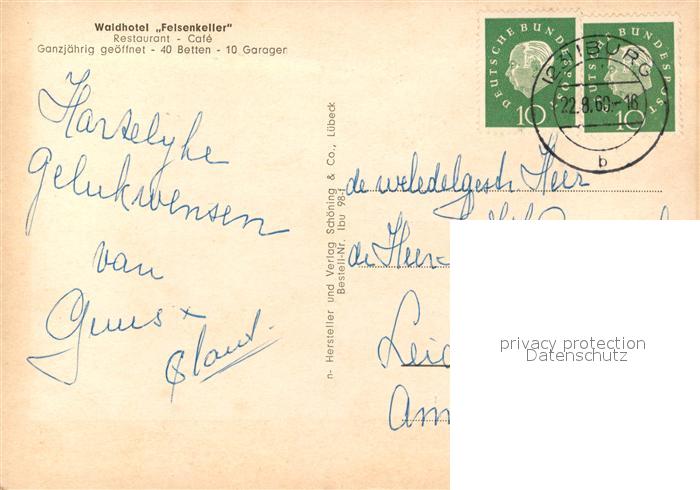 Waldhotel „Felsenkeller"
Restaurant - Café
Ganzjährig geöffnet - 40 Betten - 10 Garagen
DEUTSCHE BUNDESPOST
10
DEUTSCHE BUNDESPOST
10
IBURG
22.8.60-18
b
Hartelyke
gelukwensen
van
Guus
n- Hersteller und Verlag Schöning & Co., Lübeck
Bestell-Nr. Ibu 98-1
de weledelgestr Heer
de Heer
privacy protection
Datenschutz